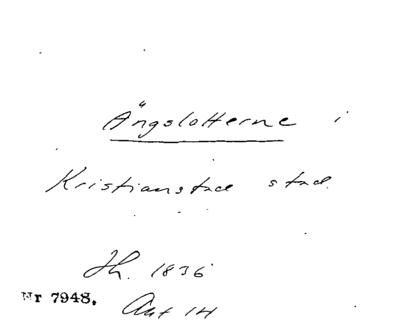 Ängslotterne i
Kristianstad stad.
Jh. 1836
Nr 7948.
Akt 14